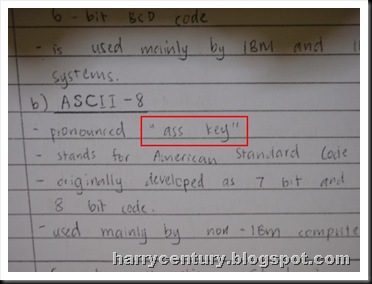 6 - bit BCD code
- is used mainly by IBM and
systems.
b) ASCII - 8
- pronounced "ass key"
- stands for American Standard Code
- originally developed as 7 bit and
8 bit code.
- used mainly by non - IBM compute
harrycentury.blogspot.com